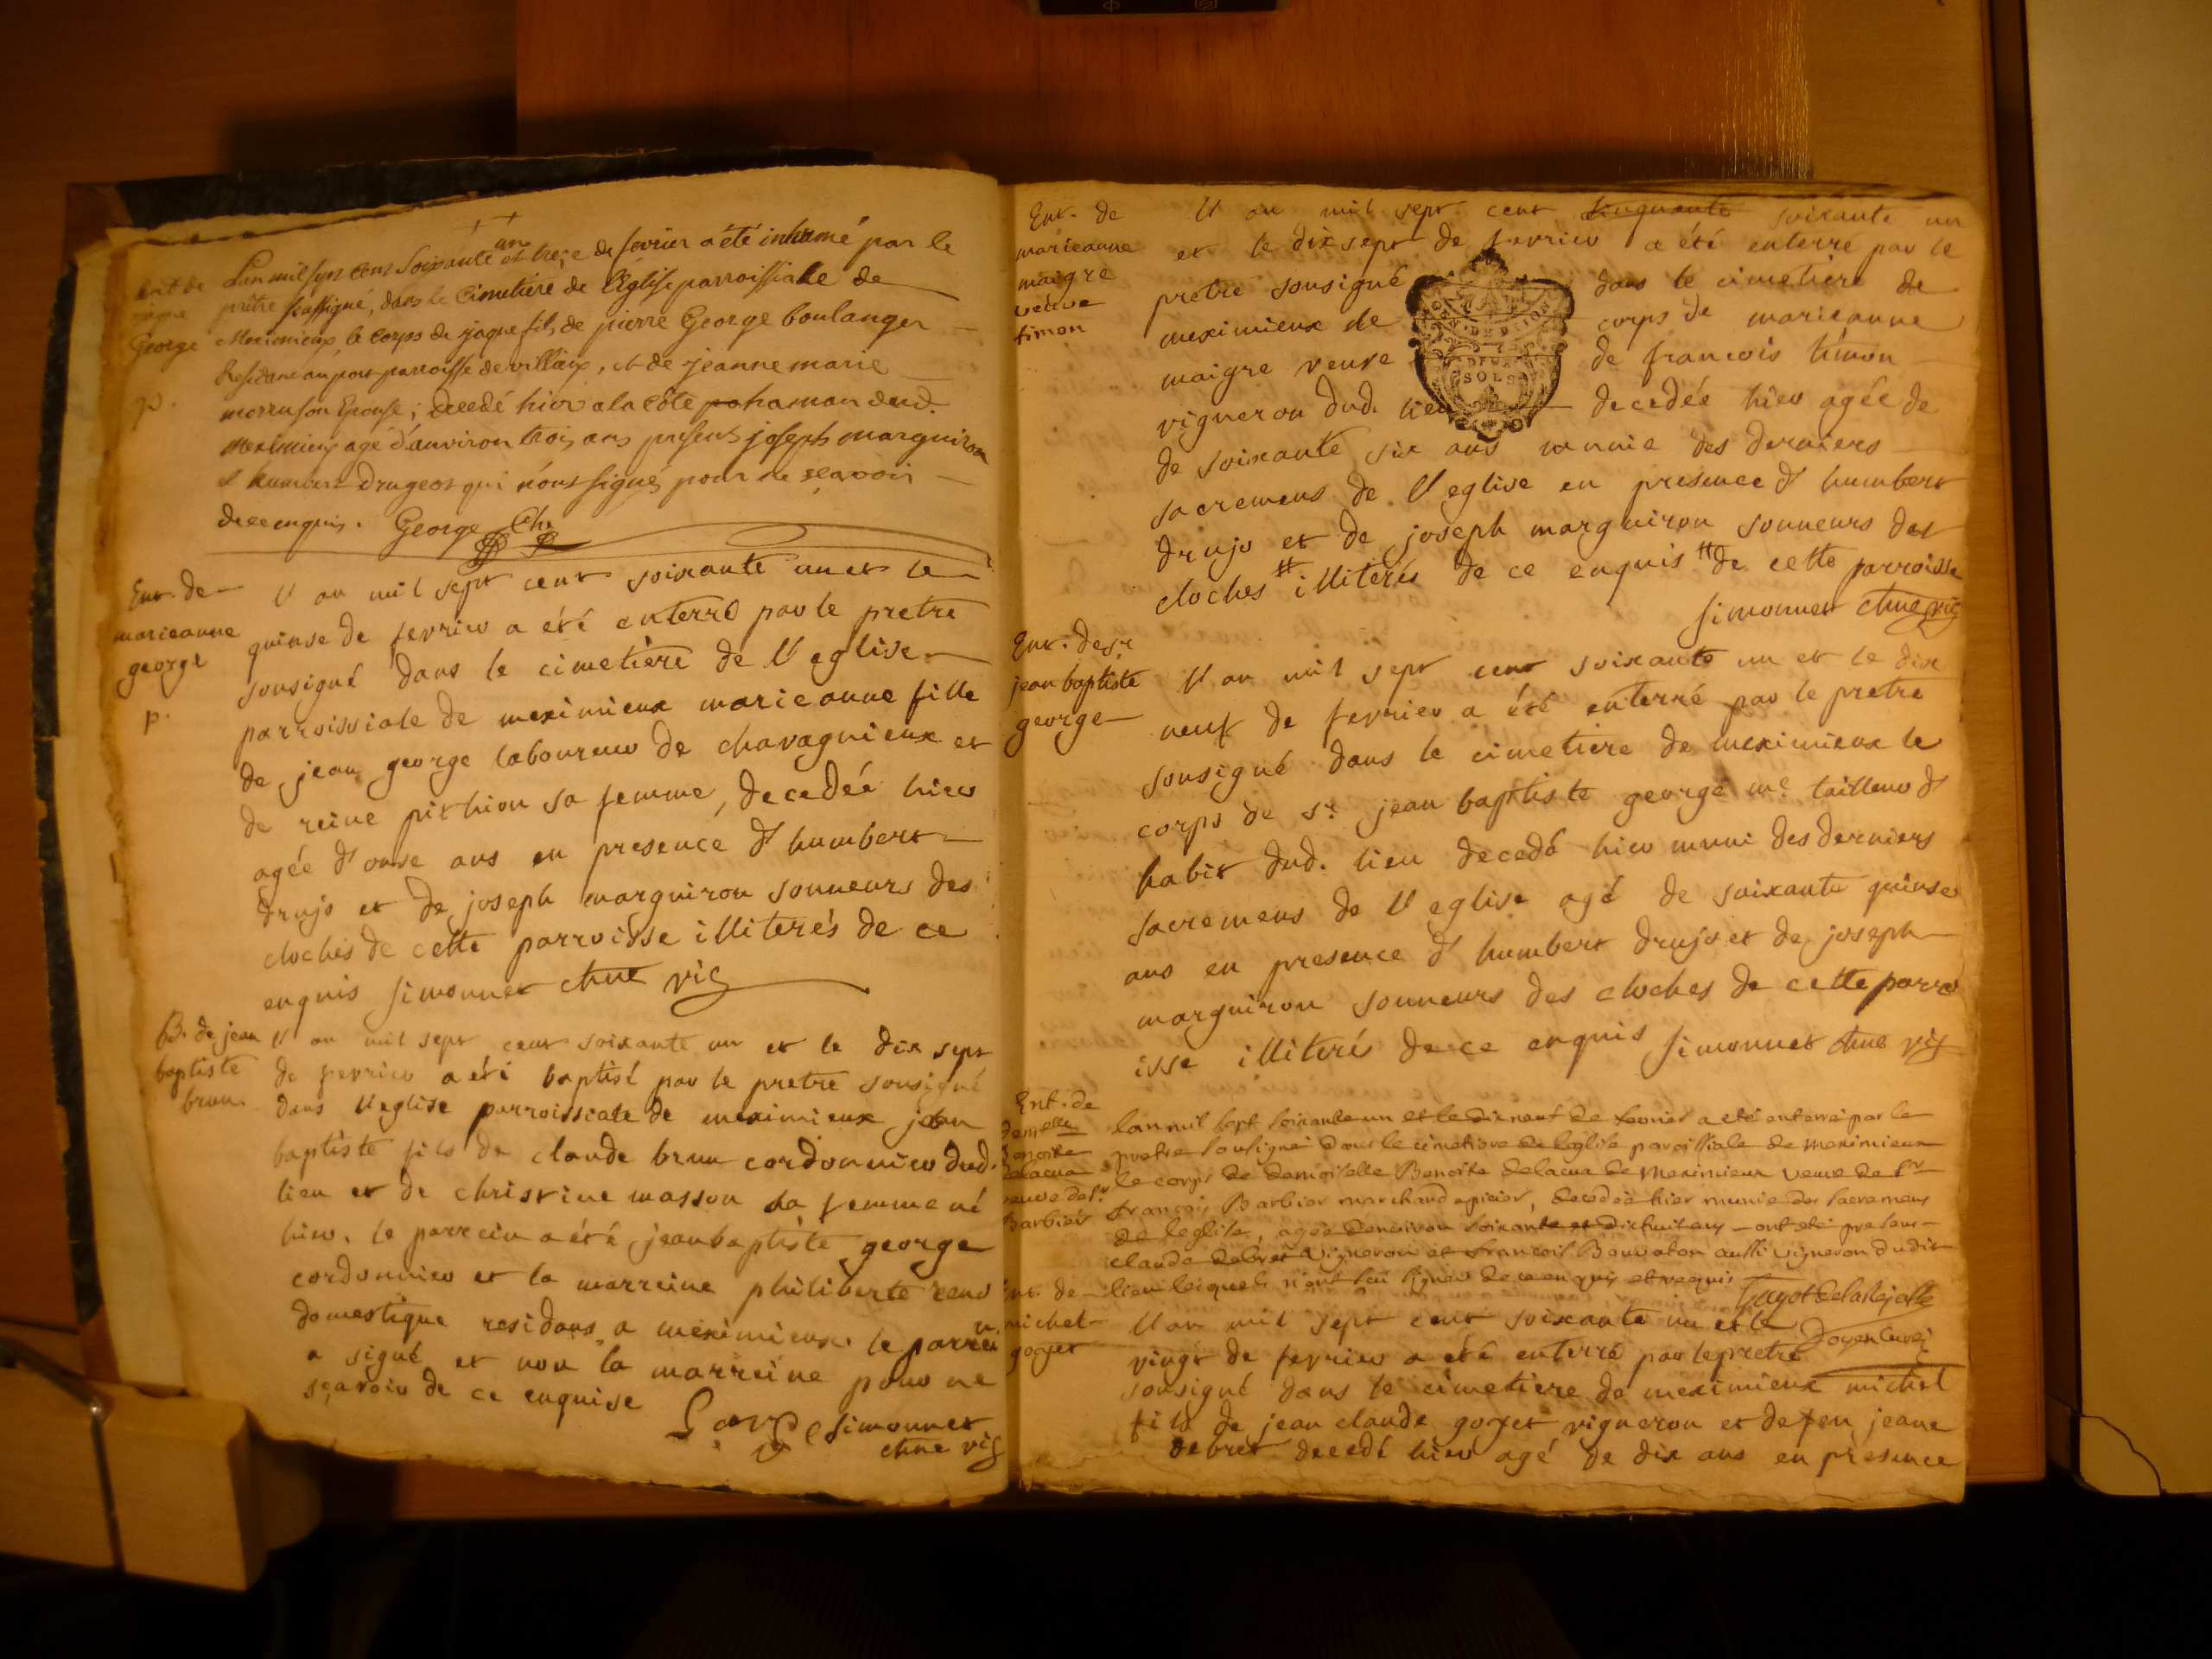 Ent de
jaque
George
p.
L'an mil sept cent Soixante un et treize de fevrier a été inhumé par le
prêtre soussigné, dans le Cimetière de l'Eglise parroissiale de
Meximieux, le corps de jaque fils de pierre George boulanger
Residant au port parroisse de villieux, et de jeanne marie
morru son Epouse; decedé hier a la côte dud.
Meximieux agé d'anviron trois ans presents joseph marguiron
et humbert Drugeot qui n'ont signés pour ne sçavoir
de ce enquis. George Ch.
Ent. de
marieanne
george
p.
l'an mil sept cent soixante un et le
quinse de fevrier a été enterré par le pretre
sousigné dans le cimetière de l'eglise
parroissiale de meximieux marieanne fille
de jean george laboureur de chavagnieux et
de reine pithion sa femme, decedée hier
agée d'onse ans en presence d'humbert
drujo et de joseph marguiron sonneurs des
cloches de cette parroisse illiterés de ce
enquis simonnet chne vic
B. de jean
baptiste
brun.
l'an mil sept cent soixante un et le dix sept
de fevrier a été baptisé par le pretre sousigné
dans l'eglise parroissiale de meximieux jean
baptiste fils de claude brun cordonnier dud.
lieu et de christine masson sa femme né
hier. le parrein a été jeanbaptiste george
cordonnier et la marreine philiberte
domestique residans a meximieux. le parrein
a signé et non la marreine pour ne
sçavoir de ce enquise
simonnet
chne vic
Ent. de
marieanne
maigre
veuve
timon
l'an mil sept cent cinquante soixante un
et le dixsept de fevrier a été enterré par le
pretre sousigné dans le cimetiere de
meximieux le corps de marieanne
maigre veuve de francois timon
vigneron dud. lieu decedée hier agée de
de soixante six ans munie des derniers
sacremens de l'eglise en presence d'humbert
drujo et de joseph marguiron sonneurs des
cloches # illiterés de ce enquis # de cette parroisse
simonnet chne vic
DEUX
SOLS
Ent. de sr.
jean baptiste
george
l'an mil sept cent soixante un et le dix
neuf de fevrier a été enterré par le pretre
sousigné dans le cimetiere de meximieux le
corps de sr. jean baptiste george me. tailleur d'
habit dud. lieu decedé hier muni des derniers
sacremens de l'eglise agé de soixante quinse
ans en presence d'humbert drujo et de joseph
marguiron sonneurs des cloches de cette parro
isse illiterés de ce enquis simonnet chne vic
Ent. de
demelle
Benoite
delacua
veuve de sr.
Barbier
lan mil sept soixante un et le dix neuf de fevrier a eté enterré par le
pretre soussigné dans le cimetiere de leglise paroissiale de meximieux
le corps de demoiselle Benoite delacua de meximieux veuve de sr
francois Barbier marchand epicier, decedée hier munie des sacremens
de leglise, agée denviron soixante et dixhuit ans – ont eté presens
claude debret vigneron et francois Bouvaton aussi vigneron dudit
lieu lesquels n'ont sçu signer de ce enquis et requis
doyen curé
Ent. de
michel
goyet
l'an mil sept cent soixante un et le
vingt de fevrier a été enterré par le pretre
sousigné dans le cimetiere de meximieux michel
fils de jean claude goyet vigneron et de feu jeane
debret decedé hier agé de dix ans en presence